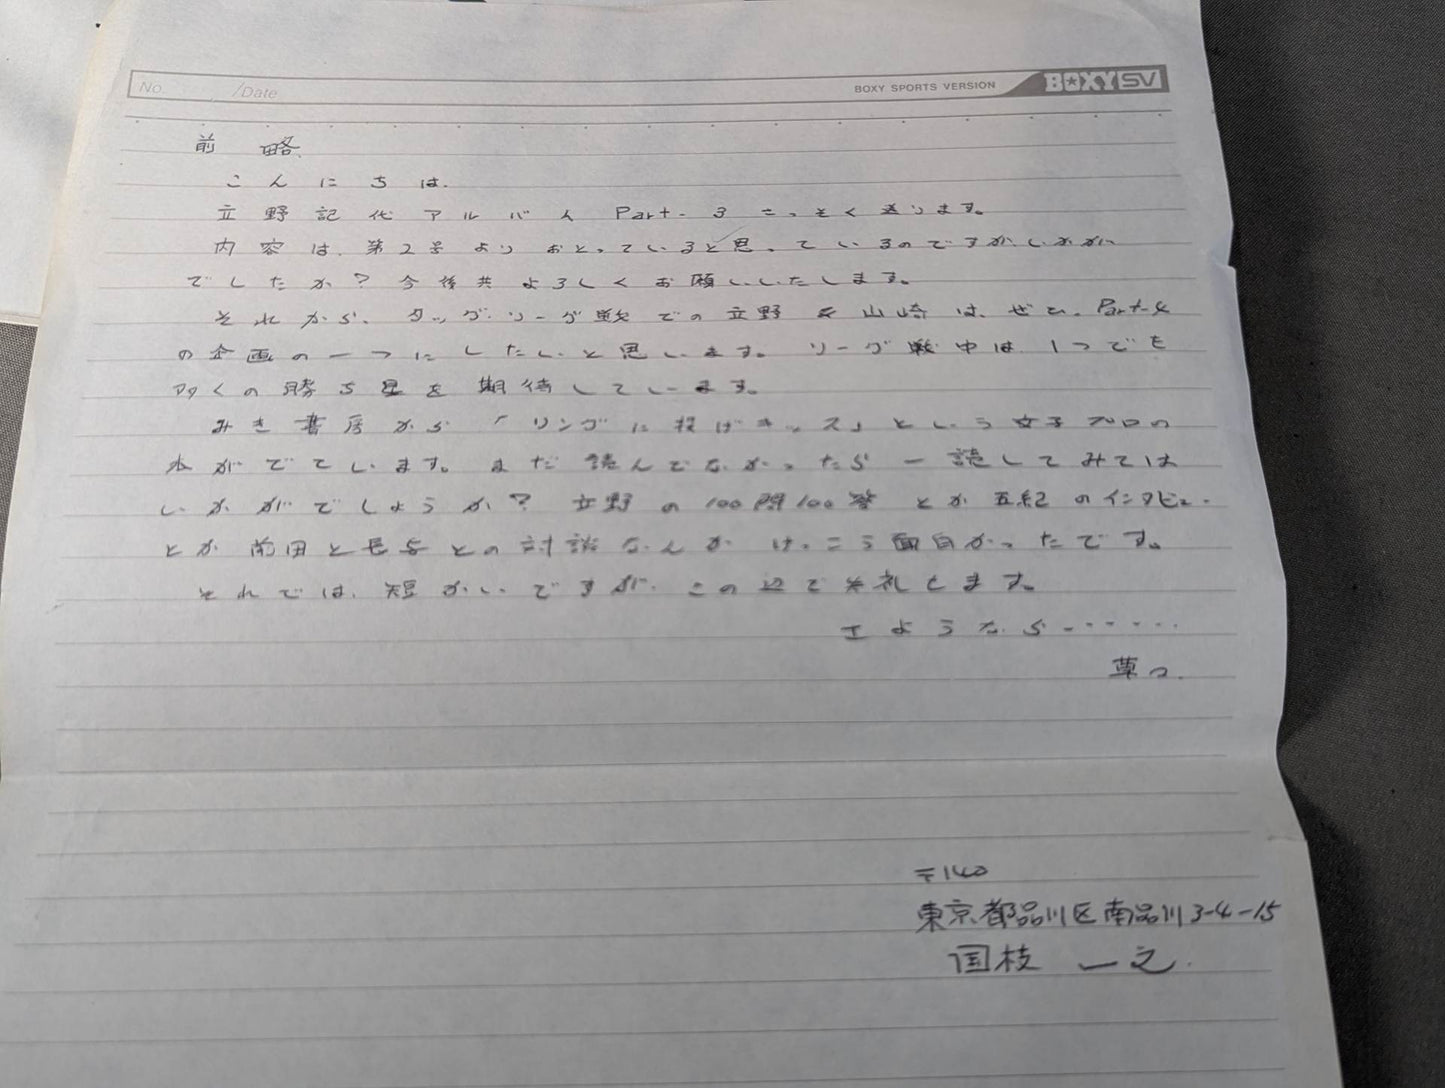 No. /Date BOXY SPORTS VERSION BOXY SV
前略
こんにちは.
立野記代アルバム Part-3 さっそく送ります。
内容は、第2号よりおとっていると思っているのですが、いかが
でしたか?今後共よろしくお願いいたします。
それから、タッグ・リーグ戦での立野&山崎は、ぜひ、Part-4
の企画の一つにしたいと思います。リーグ戦中は、1つでも
多くの勝ち星を期待しています。
みき書房から「リングに投げキッス」という女子プロの
本がでています。まだ読んでなかったら一読してみては
いかがでしょうか?立野の100問100答とか五紀のインタビュー
とか前田と長与との対談なんかけっこう面白かったです。
それでは、短かいですが、この辺で失礼します。
さようなら-・・・・・・
草々.
〒140
東京都品川区南品川3-4-15
国枝 一之.